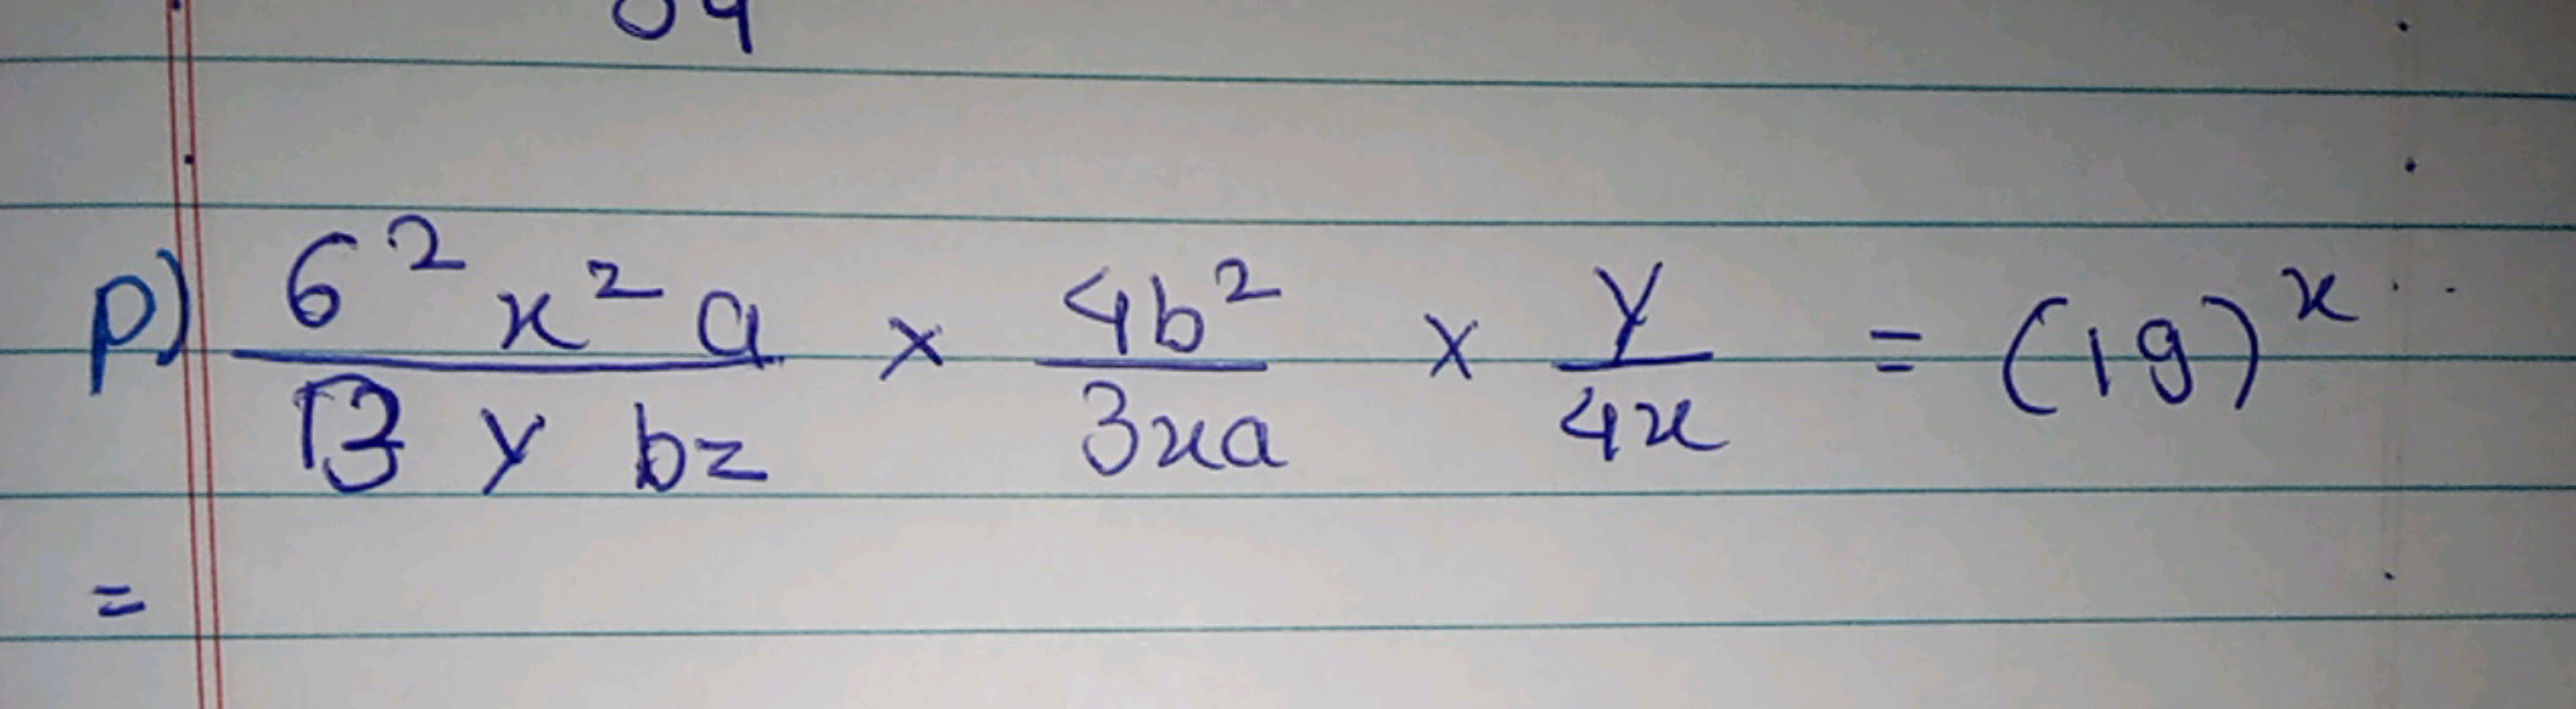 p) 6² x² a / 13 y bz × 4b² / 3xa × y / 4x = (19)ˣ
=